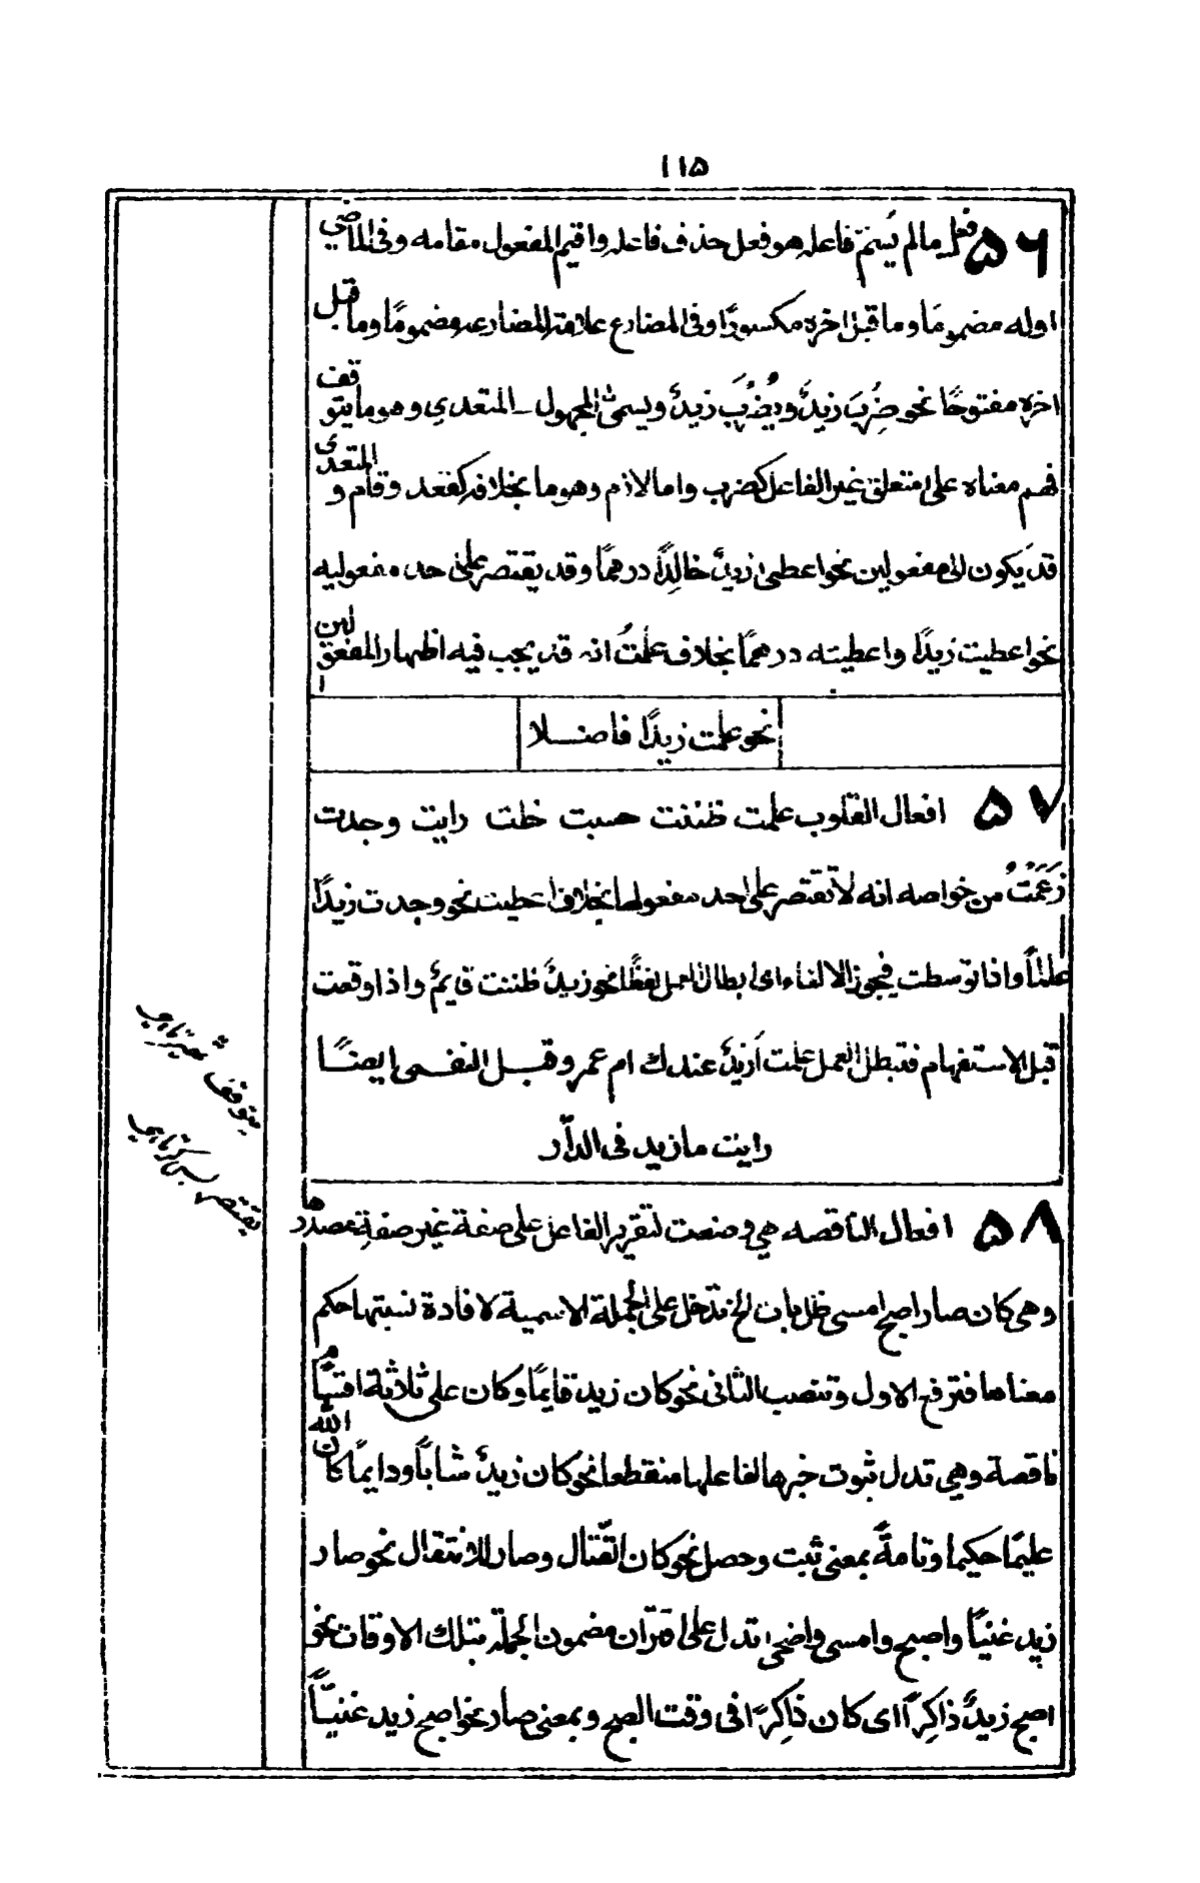 ۱۱۵
۵۶ فعل مالم یُسَمّ فاعله هو فعل حذف فاعله واقیم المفعول مقامه وفی الماضی
اوله مضمومًا وما قبل اخره مکسورًا وفی المضارع علامة المضارعه مضمومًا وما قبل
اخره مفتوحًا نحو ضُرِبَ زیدٌ ویُضْرَبُ زیدٌ ویسمیٰ المجهول ـ المتعدی وهو ما یتوقف
فهم معناه علی متعلق غیر الفاعل کضرب واما لازم وهو ما بخلافه کقعد وقام و المتعدی
قد یکون الی مفعولین نحو اعطیٰ زیدٌ خالدًا درهمًا وقد یقتصر علی احد مفعولیه
نحو اعطیت زیدًا واعطیته درهمًا بخلاف علمتُ انه قد یجب فیه اظهار المفعولین
نحو علمت زیدًا فاضلا
۵۷ افعال القلوب علمت ظننت حسبت خلت رایت وجدت
زَعَمْتُ من خواصه انه لا تقتصر علی احد مفعولها بخلاف اعطیت نحو وجدت زیدًا
عالمًا واذا توسطت فیجوز الالغاء ای ابطال العمل لفظًا نحو زیدٌ ظننت قایمٌ واذا وقعت
قبل الاستفهام فتبطل العمل علمت اَزیدٌ عندك ام عمر وقبل النفی ایضًا
رایت ما زید فی الدّار
متوقف ٹھیرتا ہے
یقتصر بس کرتا ہے
۵۸ افعال الناقصه هی وضعت لتقریر الفاعل علی صفة غیر صفةِ مصدرها
وهی کان صار اصبح امسی ظل بات الخ تدخل علی الجملة الاسمیة لافادة نسبتها حکم
معناها فترفع الاول وتنصب الثانی نحو کان زید قایمًا وکان علی ثلاثة اقسام
ناقصة وهی تدل ثبوت خبرها لفاعلها منقطعا نحو کان زیدٌ شابًا ودایمًا کان الله
علیمًا حکیما وتامةً بمعنی ثبت وحصل نحو کان القتال وصار للانتقال نحو صار
زید غنیًا واصبح وامسی واضحی تدل علی اقتران مضمون الجملة بتلك الاوقات نحو
اصبح زیدٌ ذاکِرًا ای کان ذاکِرًا فی وقت الصبح وبمعنی صار نحو اصبح زید غنیًّا